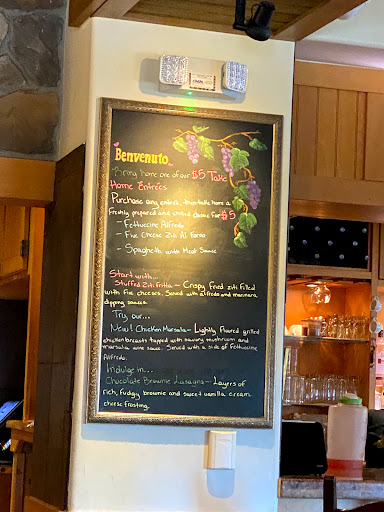 Benvenuto...
Bring home one of our $5 Take
Home Entrées
Purchase any entrée, then take home a
freshly prepared and chilled classic for $5
- Fettuccine Alfredo
- Five Cheese Ziti Al Forno
- Spaghetti with Meat Sauce
Start with...
Stuffed Ziti Fritta - Crispy fried ziti filled
with five cheeses. Served with alfredo and marinara
dipping sauces.
Try our...
New! Chicken Marsala - Lightly floured grilled
chicken breasts topped with savory mushroom and
marsala wine sauce. Served with a side of Fettuccine
Alfredo.
Indulge in...
Chocolate Brownie Lasagna - Layers of
rich, fudgy brownie and sweet vanilla cream
cheese frosting.